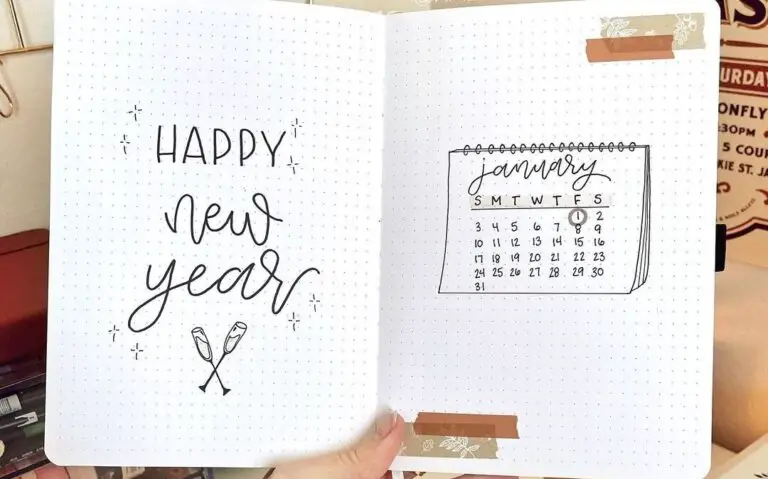 HAPPY
new
year
january
S M T W T F S
1 2
3 4 5 6 7 8 9
10 11 12 13 14 15 16
17 18 19 20 21 22 23
24 25 26 27 28 29 30
31
URDAY
ONFLY
:30PM
5 COUR
KIE ST. JA